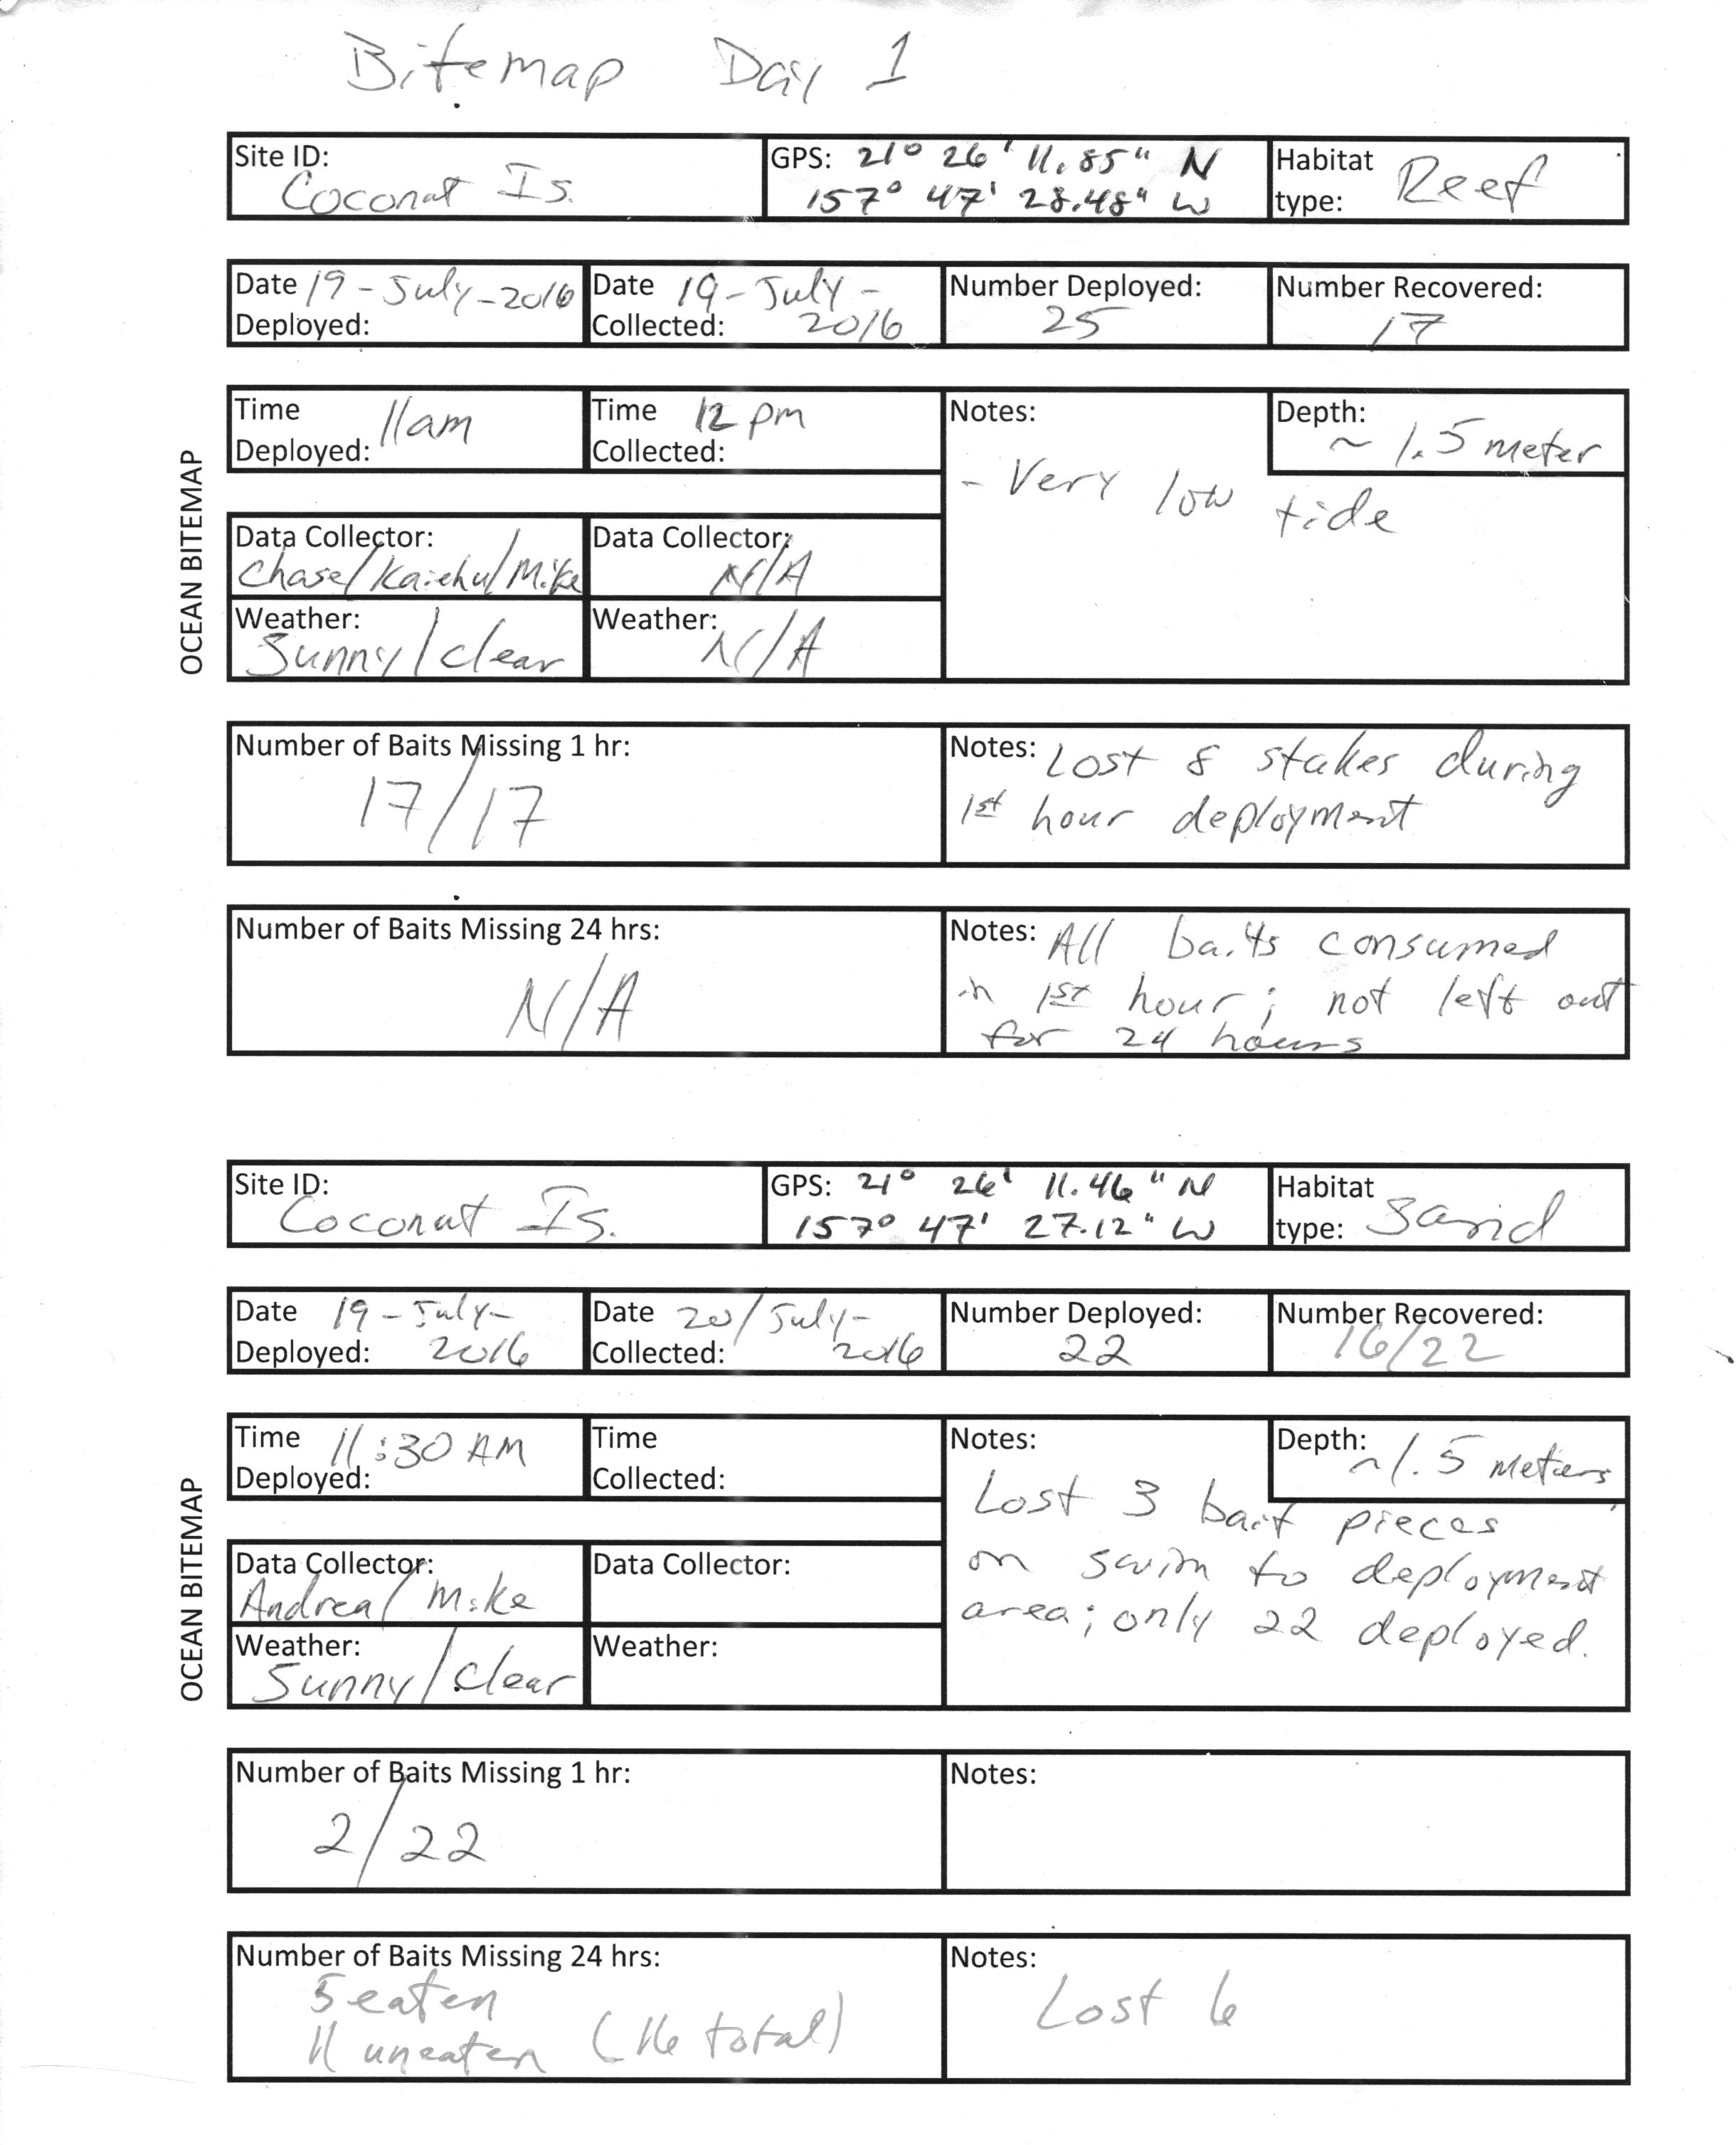 Bitemap Day 1
Site ID: Coconut Is.
GPS: 21° 26' 11.85" N
157° 47' 28.48" W
Habitat type: Reef
Date Deployed: 19-July-2016
Date Collected: 19-July-2016
Number Deployed: 25
Number Recovered: 17
OCEAN BITEMAP
Time Deployed: 11am
Time Collected: 12 pm
Notes:
- Very low tide
Depth: ~ 1.5 meter
Data Collector: Chase/Kaiehu/Mike
Data Collector: N/A
Weather: Sunny/clear
Weather: N/A
Number of Baits Missing 1 hr:
17/17
Notes: Lost 8 stakes during
1st hour deployment
Number of Baits Missing 24 hrs:
N/A
Notes: All baits consumed
in 1st hour; not left out
for 24 hours
Site ID: Coconut Is.
GPS: 21° 26' 11.46" N
157° 47' 27.12" W
Habitat type: Sand
Date Deployed: 19-July-2016
Date Collected: 20/July-2016
Number Deployed: 22
Number Recovered: 16/22
OCEAN BITEMAP
Time Deployed: 11:30 AM
Time Collected:
Notes:
Depth: ~1.5 meters
Lost 3 bait pieces
on swim to deployment
area; only 22 deployed.
Data Collector: Andrea/Mike
Data Collector:
Weather: Sunny/Clear
Weather:
Number of Baits Missing 1 hr:
2/22
Notes:
Number of Baits Missing 24 hrs:
5 eaten
11 uneaten (16 total)
Notes:
Lost 6